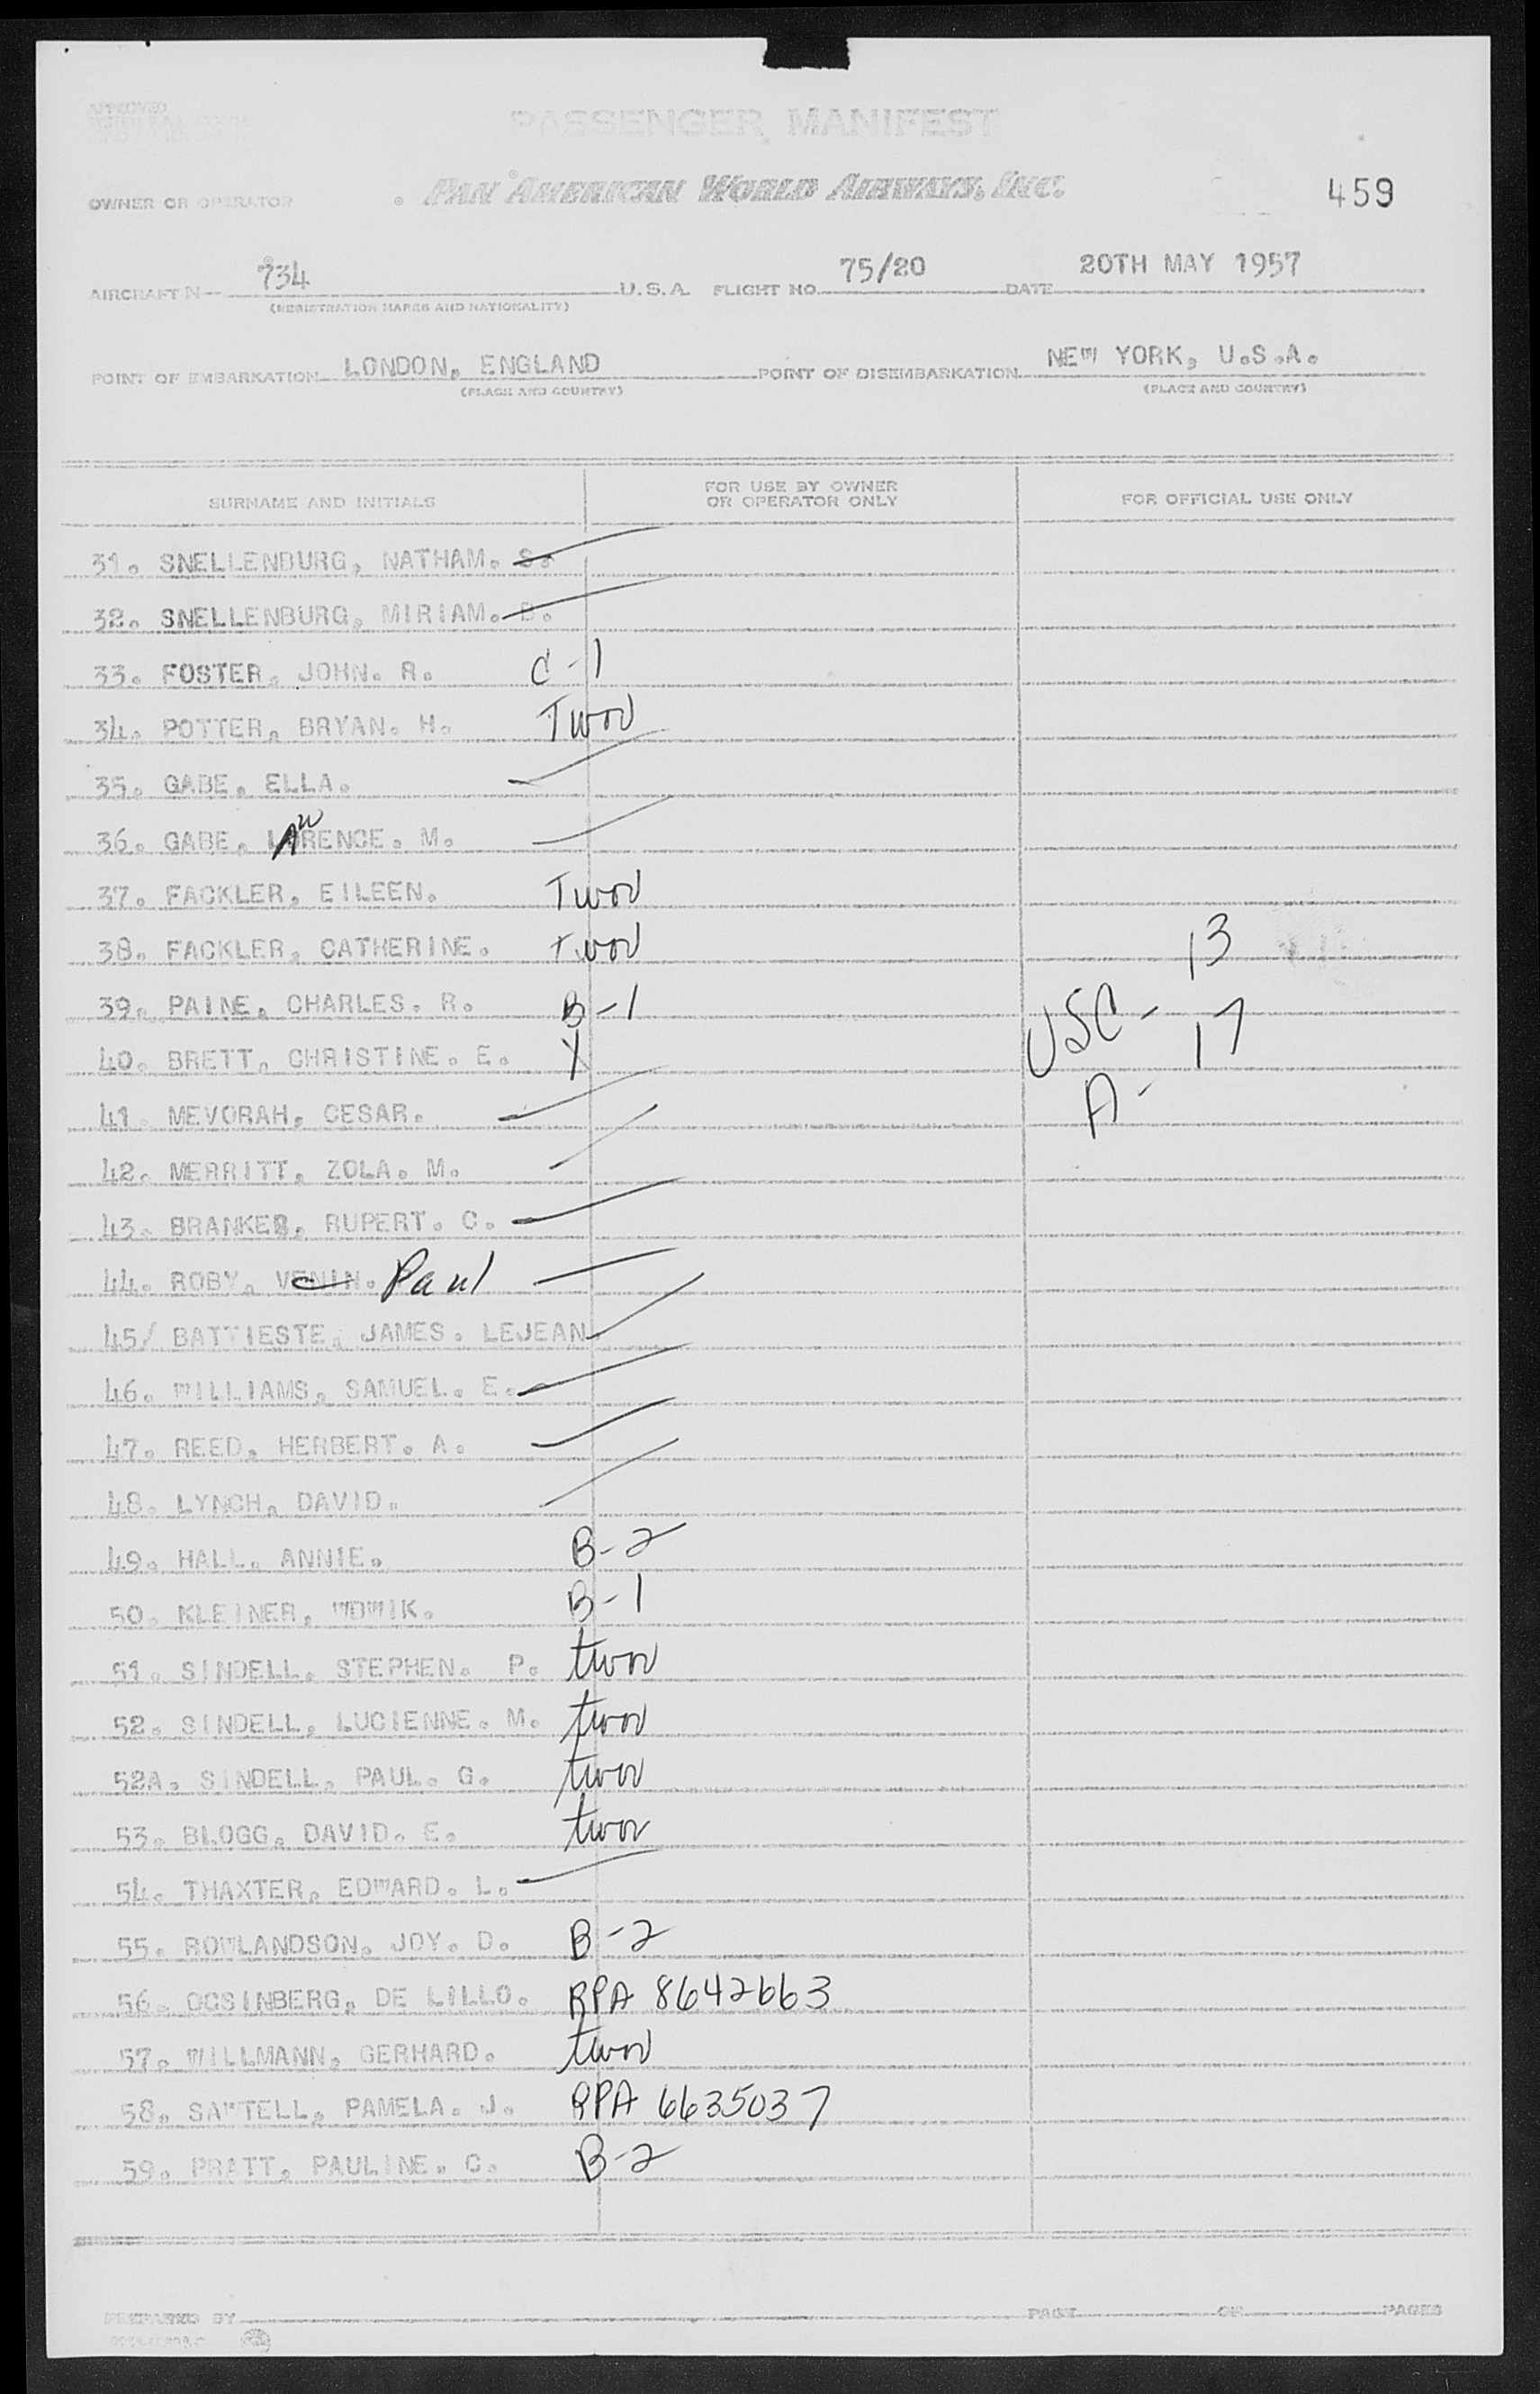 APPROVED
PASSENGER MANIFEST
OWNER OR OPERATOR PAN AMERICAN WORLD AIRWAYS, INC. 459
AIRCRAFT N— 734 U.S.A. FLIGHT NO. 75/20 DATE 20TH MAY 1957
(REGISTRATION MARKS AND NATIONALITY)
POINT OF EMBARKATION LONDON, ENGLAND POINT OF DISEMBARKATION NEW YORK, U.S.A.
(PLACE AND COUNTRY) (PLACE AND COUNTRY)
SURNAME AND INITIALS FOR USE BY OWNER OR OPERATOR ONLY FOR OFFICIAL USE ONLY
31. SNELLENBURG, NATHAM. S.
32. SNELLENBURG, MIRIAM. B.
33. FOSTER, JOHN. R. C-1
34. POTTER, BRYAN. H. Twov
35. GABE, ELLA.
36. GABE, LAWRENCE. M.
37. FACKLER, EILEEN. Twov
38. FACKLER, CATHERINE. Twov
13
39. PAINE, CHARLES. R. B-1 USC -
40. BRETT, CHRISTINE. E. X 17
41. MEVORAH, CESAR. A -
42. MERRITT, ZOLA. M.
43. BRANKER, RUPERT. C.
44. ROBY, VENIN. Paul
45/ BATTIESTE, JAMES. LEJEAN.
46. WILLIAMS, SAMUEL. E.
47. REED, HERBERT. A.
48. LYNCH, DAVID.
49. HALL, ANNIE. B-2
50. KLEINER, WDWIK. B-1
51. SINDELL, STEPHEN. P. twov
52. SINDELL, LUCIENNE. M. twov
52A. SINDELL, PAUL. G. twov
53. BLOGG, DAVID. E. twov
54. THAXTER, EDWARD. L.
55. ROWLANDSON, JOY. D. B-2
56. OCSINBERG, DE LILLO. RPA 8642663
57. WILLMANN, GERHARD. twov
58. SAWTELL, PAMELA. J. RPA 6635037
59. PRATT, PAULINE. C. B-2
PREPARED BY PAGE OF PAGES